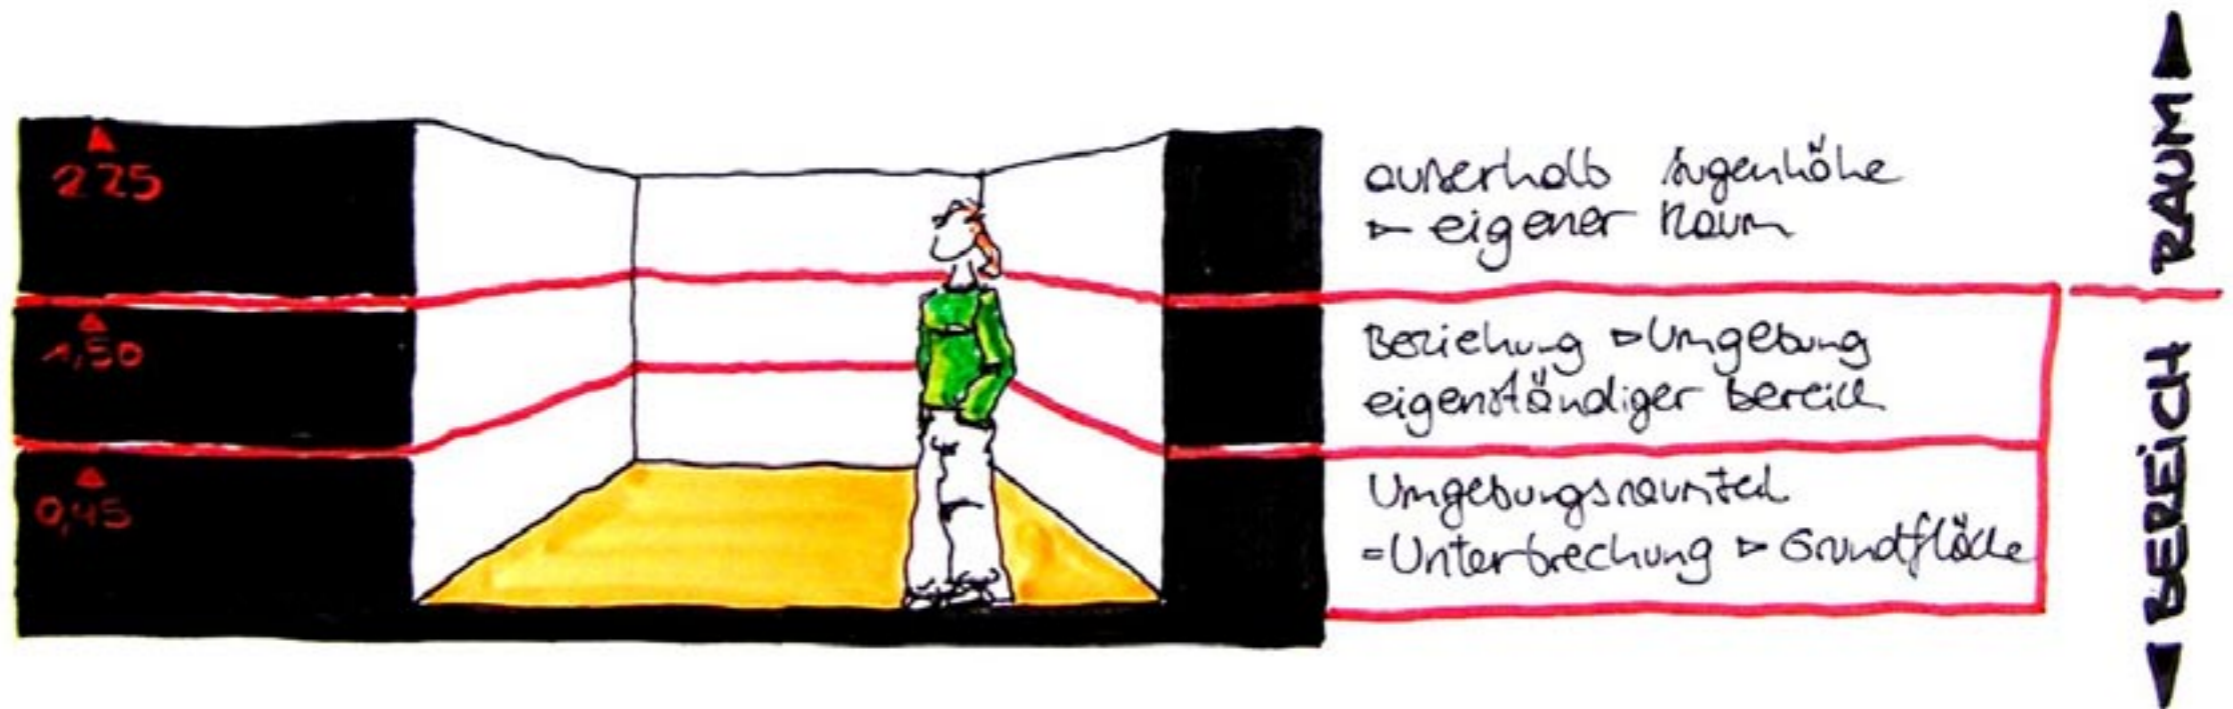 2 25
1,50
0,45
außerhalb Augenhöhe
▷ eigener Raum
Beziehung ▷ Umgebung
eigenständiger bereich
Umgebungsraumteil
= Unterbrechung ▷ Grundfläche
RAUM
BEREICH